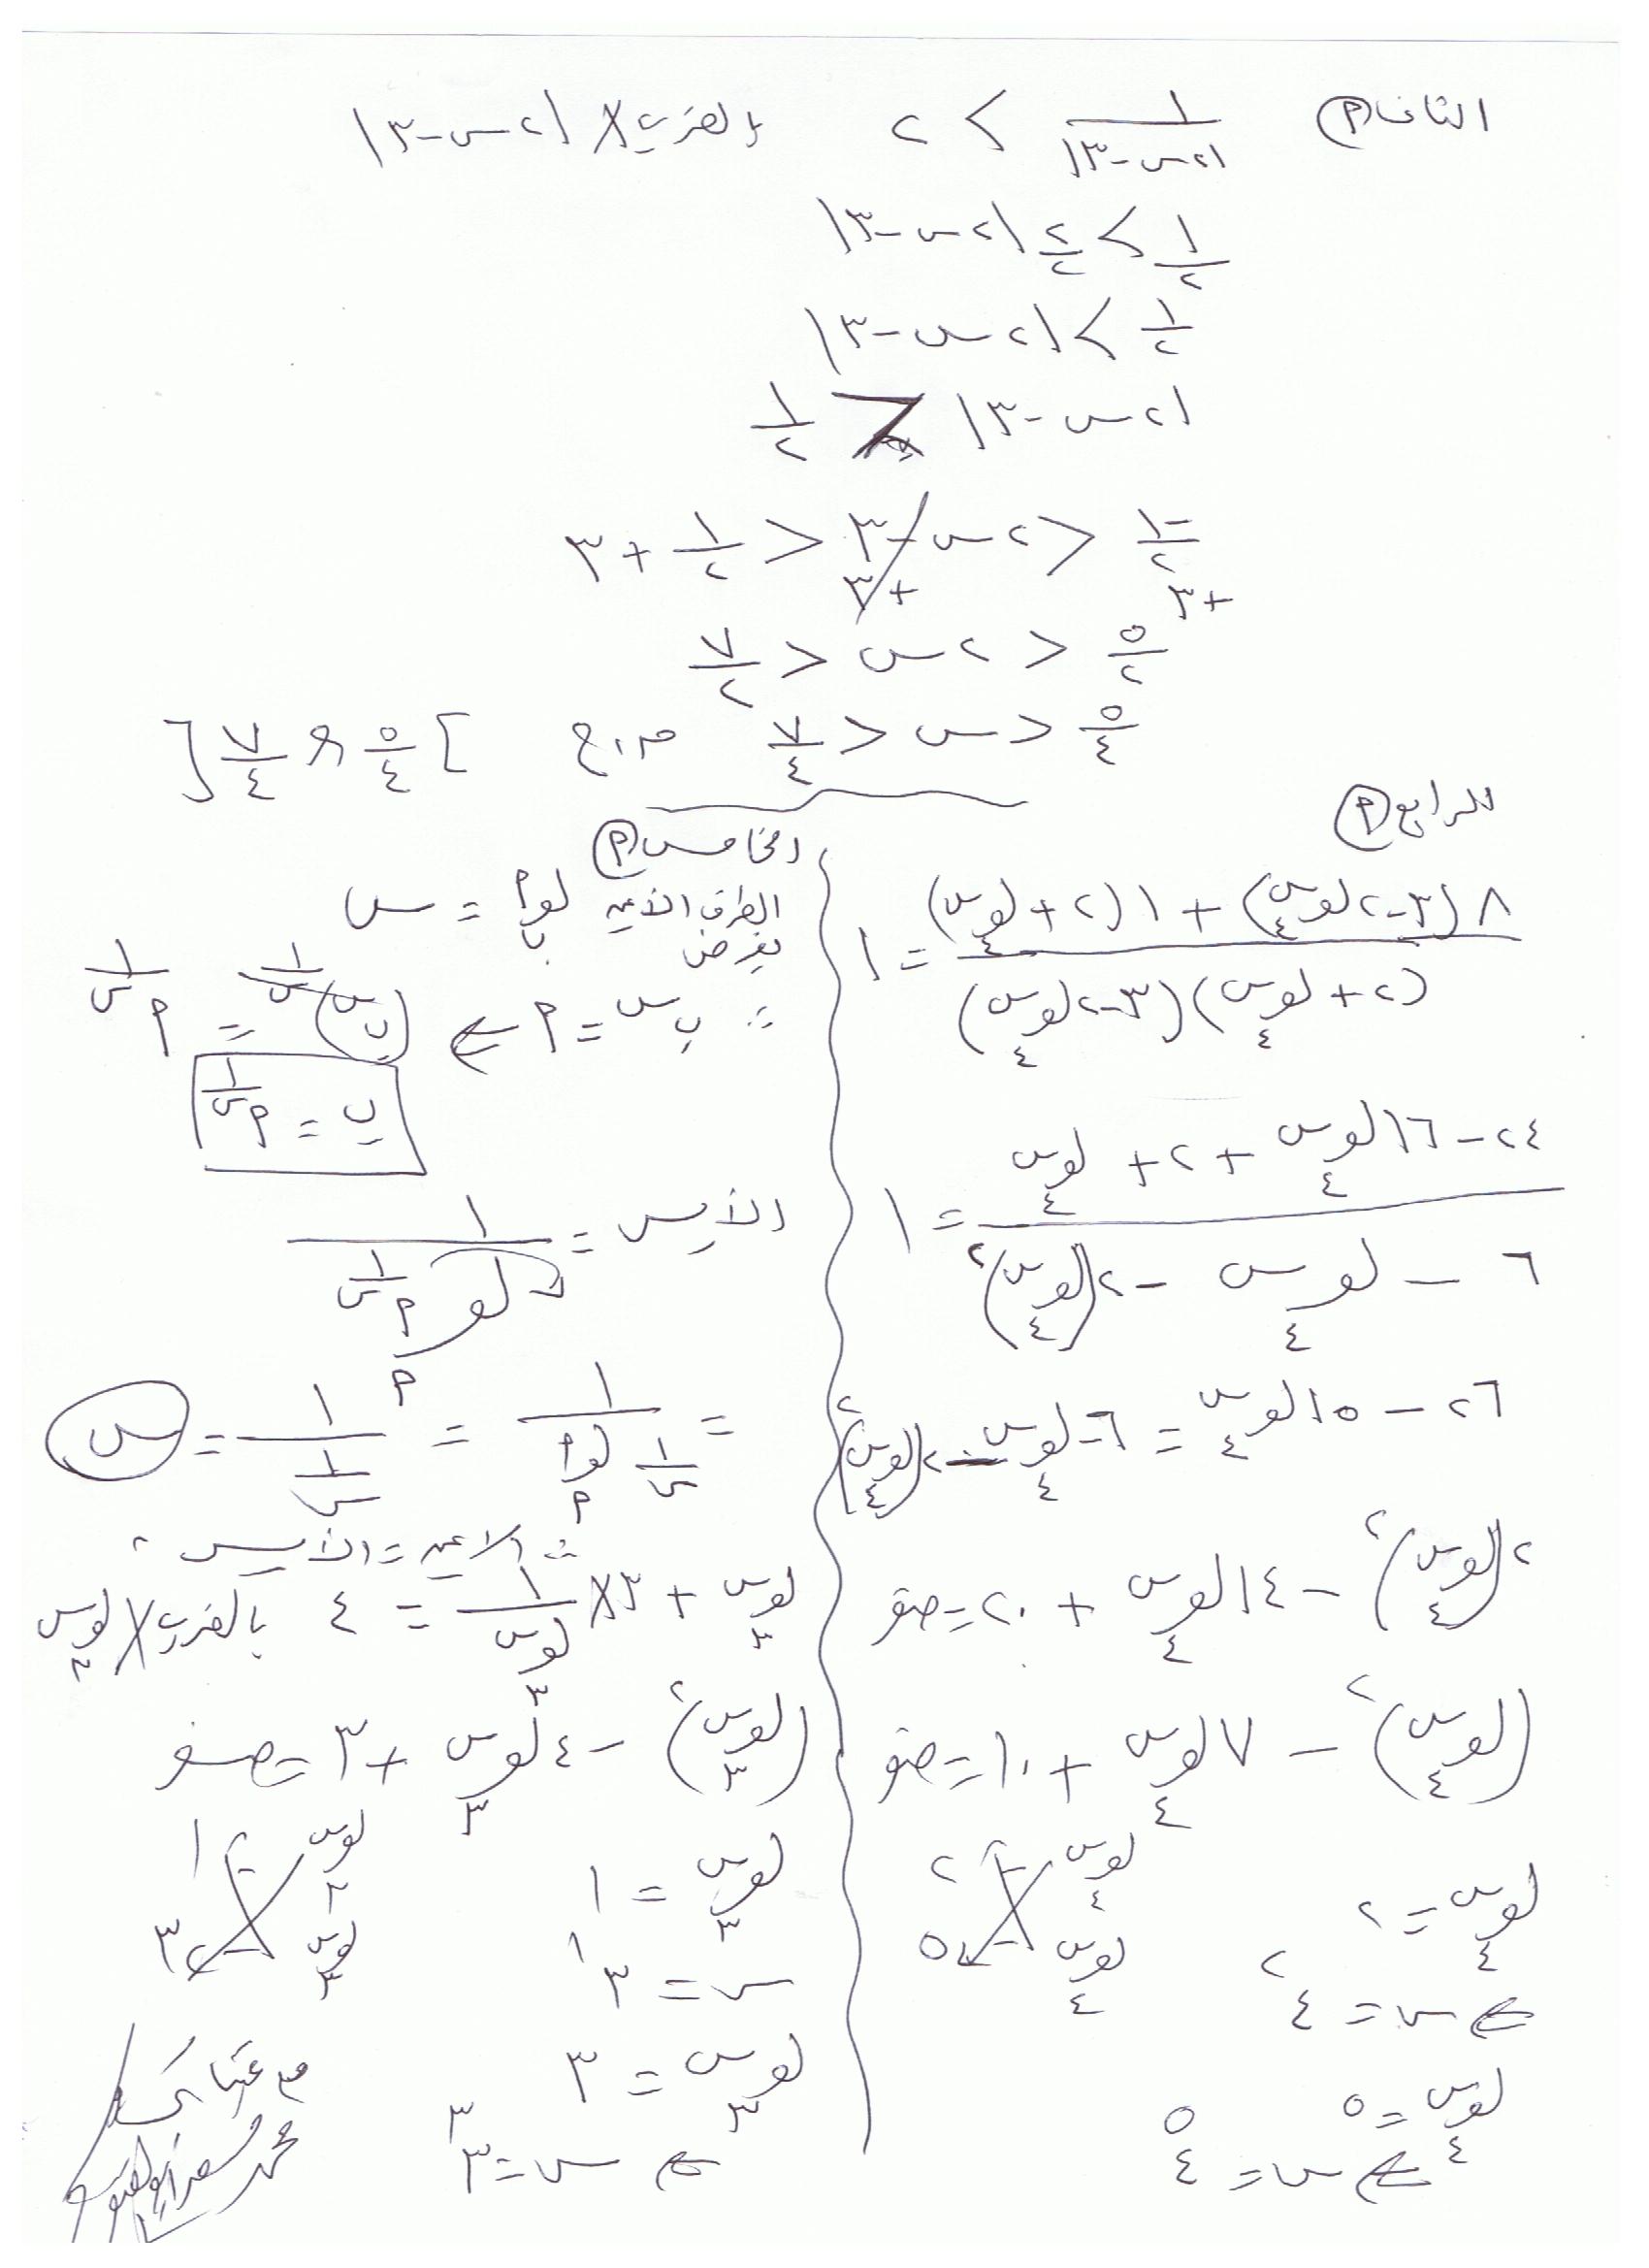 الثاني (أ) ١/|٢س-٣| > ٢ بالضرب × |٢س-٣|
١/٢ > ٢/٢ |٢س-٣|
١/٢ > |٢س-٣|
|٢س-٣| < ١/٢
-١/٢ + ٣ < ٢س - ٣ + ٣ < ١/٢ + ٣
٥/٢ < ٢س < ٧/٢
٥/٤ < س < ٧/٤ م.ح ]٥/٤ ، ٧/٤[
الرابع (أ)
(٨(٣-٢لو٤س) + ١(٢+لو٤س)) / ((٢+لو٤س)(٣-٢لو٤س)) = ١
(٢٤ - ١٦لو٤س + ٢ + لو٤س) / (٦ - لو٤س - ٢(لو٤س)²) = ١
٢٦ - ١٥لو٤س = ٦ - لو٤س - ٢(لو٤س)²
٢(لو٤س)² - ١٤لو٤س + ٢٠ = صفر
(لو٤س)² - ٧لو٤س + ١٠ = صفر
لو٤س - ٢
لو٤س - ٥
لو٤س = ٢
⇐ س = ٤²
لو٤س = ٥
⇐ س = ٤⁵
الخامس (أ)
الطرف الأيمن لو ب أ = س
بفرض
∴ ب^س = أ ⇐ (ب^س)^(١/س) = أ^(١/س)
ب = أ^(١/س)
الأيسر = ١ / لو أ أ^(١/س)
= ١ / (١/س لو أ أ) = ١ / (١/س) = س
∴ الأيمن = الأيسر
لو٣س + ٣ × ١/لو٣س = ٤ بالضرب × لو٣س
(لو٣س)² - ٤لو٣س + ٣ = صفر
لو٣س - ١
لو٣س - ٣
لو٣س = ١
س = ٣¹
لو٣س = ٣
⇐ س = ٣³
محمد